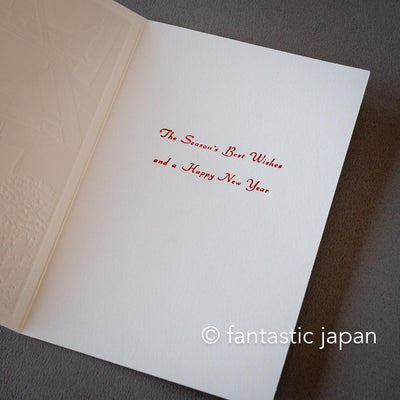 The Season's Best Wishes
and a Happy New Year
© fantastic japan